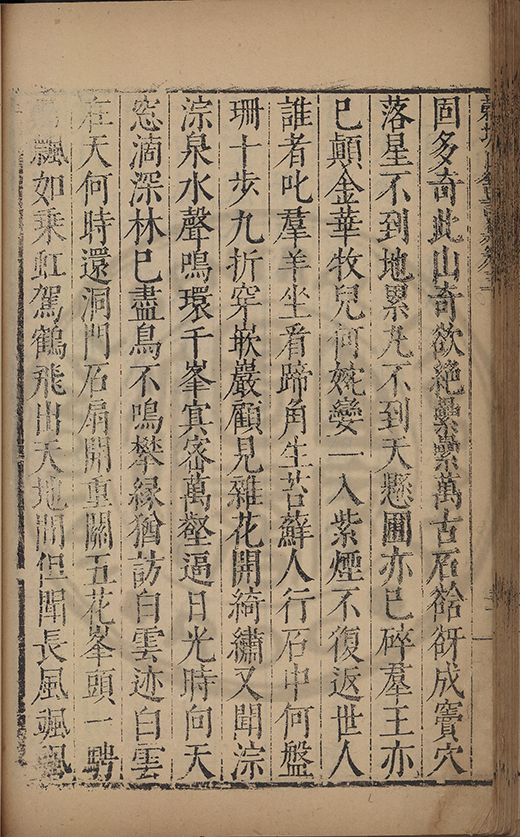 固多奇此山奇欲絕纍纍萬古石谽谺成竇穴
落星不到地累丸不到天懸圃亦已碎羣玉亦
已顛金華牧兒何婉孌一入紫煙不復返世人
誰者叱羣羊坐看蹄角生苔蘚人行石中何盤
珊十步九折穿嵌巖顧見雜花開綺繡又聞淙
淙泉水聲鳴環千峯寘㝛萬壑逼日光時向天
窓滴深林已盡鳥不鳴攀緣猶訪白雲迹白雲
在天何時還洞門石扇開重關五花峯頭一騁
飄如乘虹駕鶴飛出天地間但聞長風颯颯